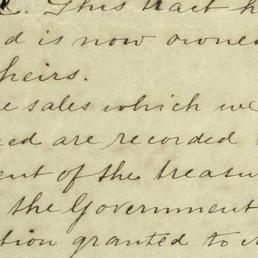 . This tract h
d is now owne
heirs.
e sales which we
ed are recorded
ent of the treasu
the Government
tion granted to